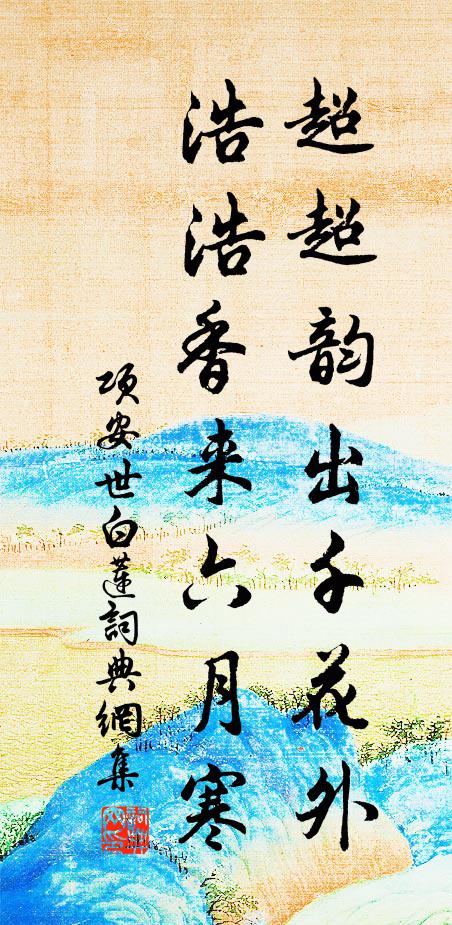 超超韵出千花外
浩浩香来六月寒
项安世白蓮詞典網集